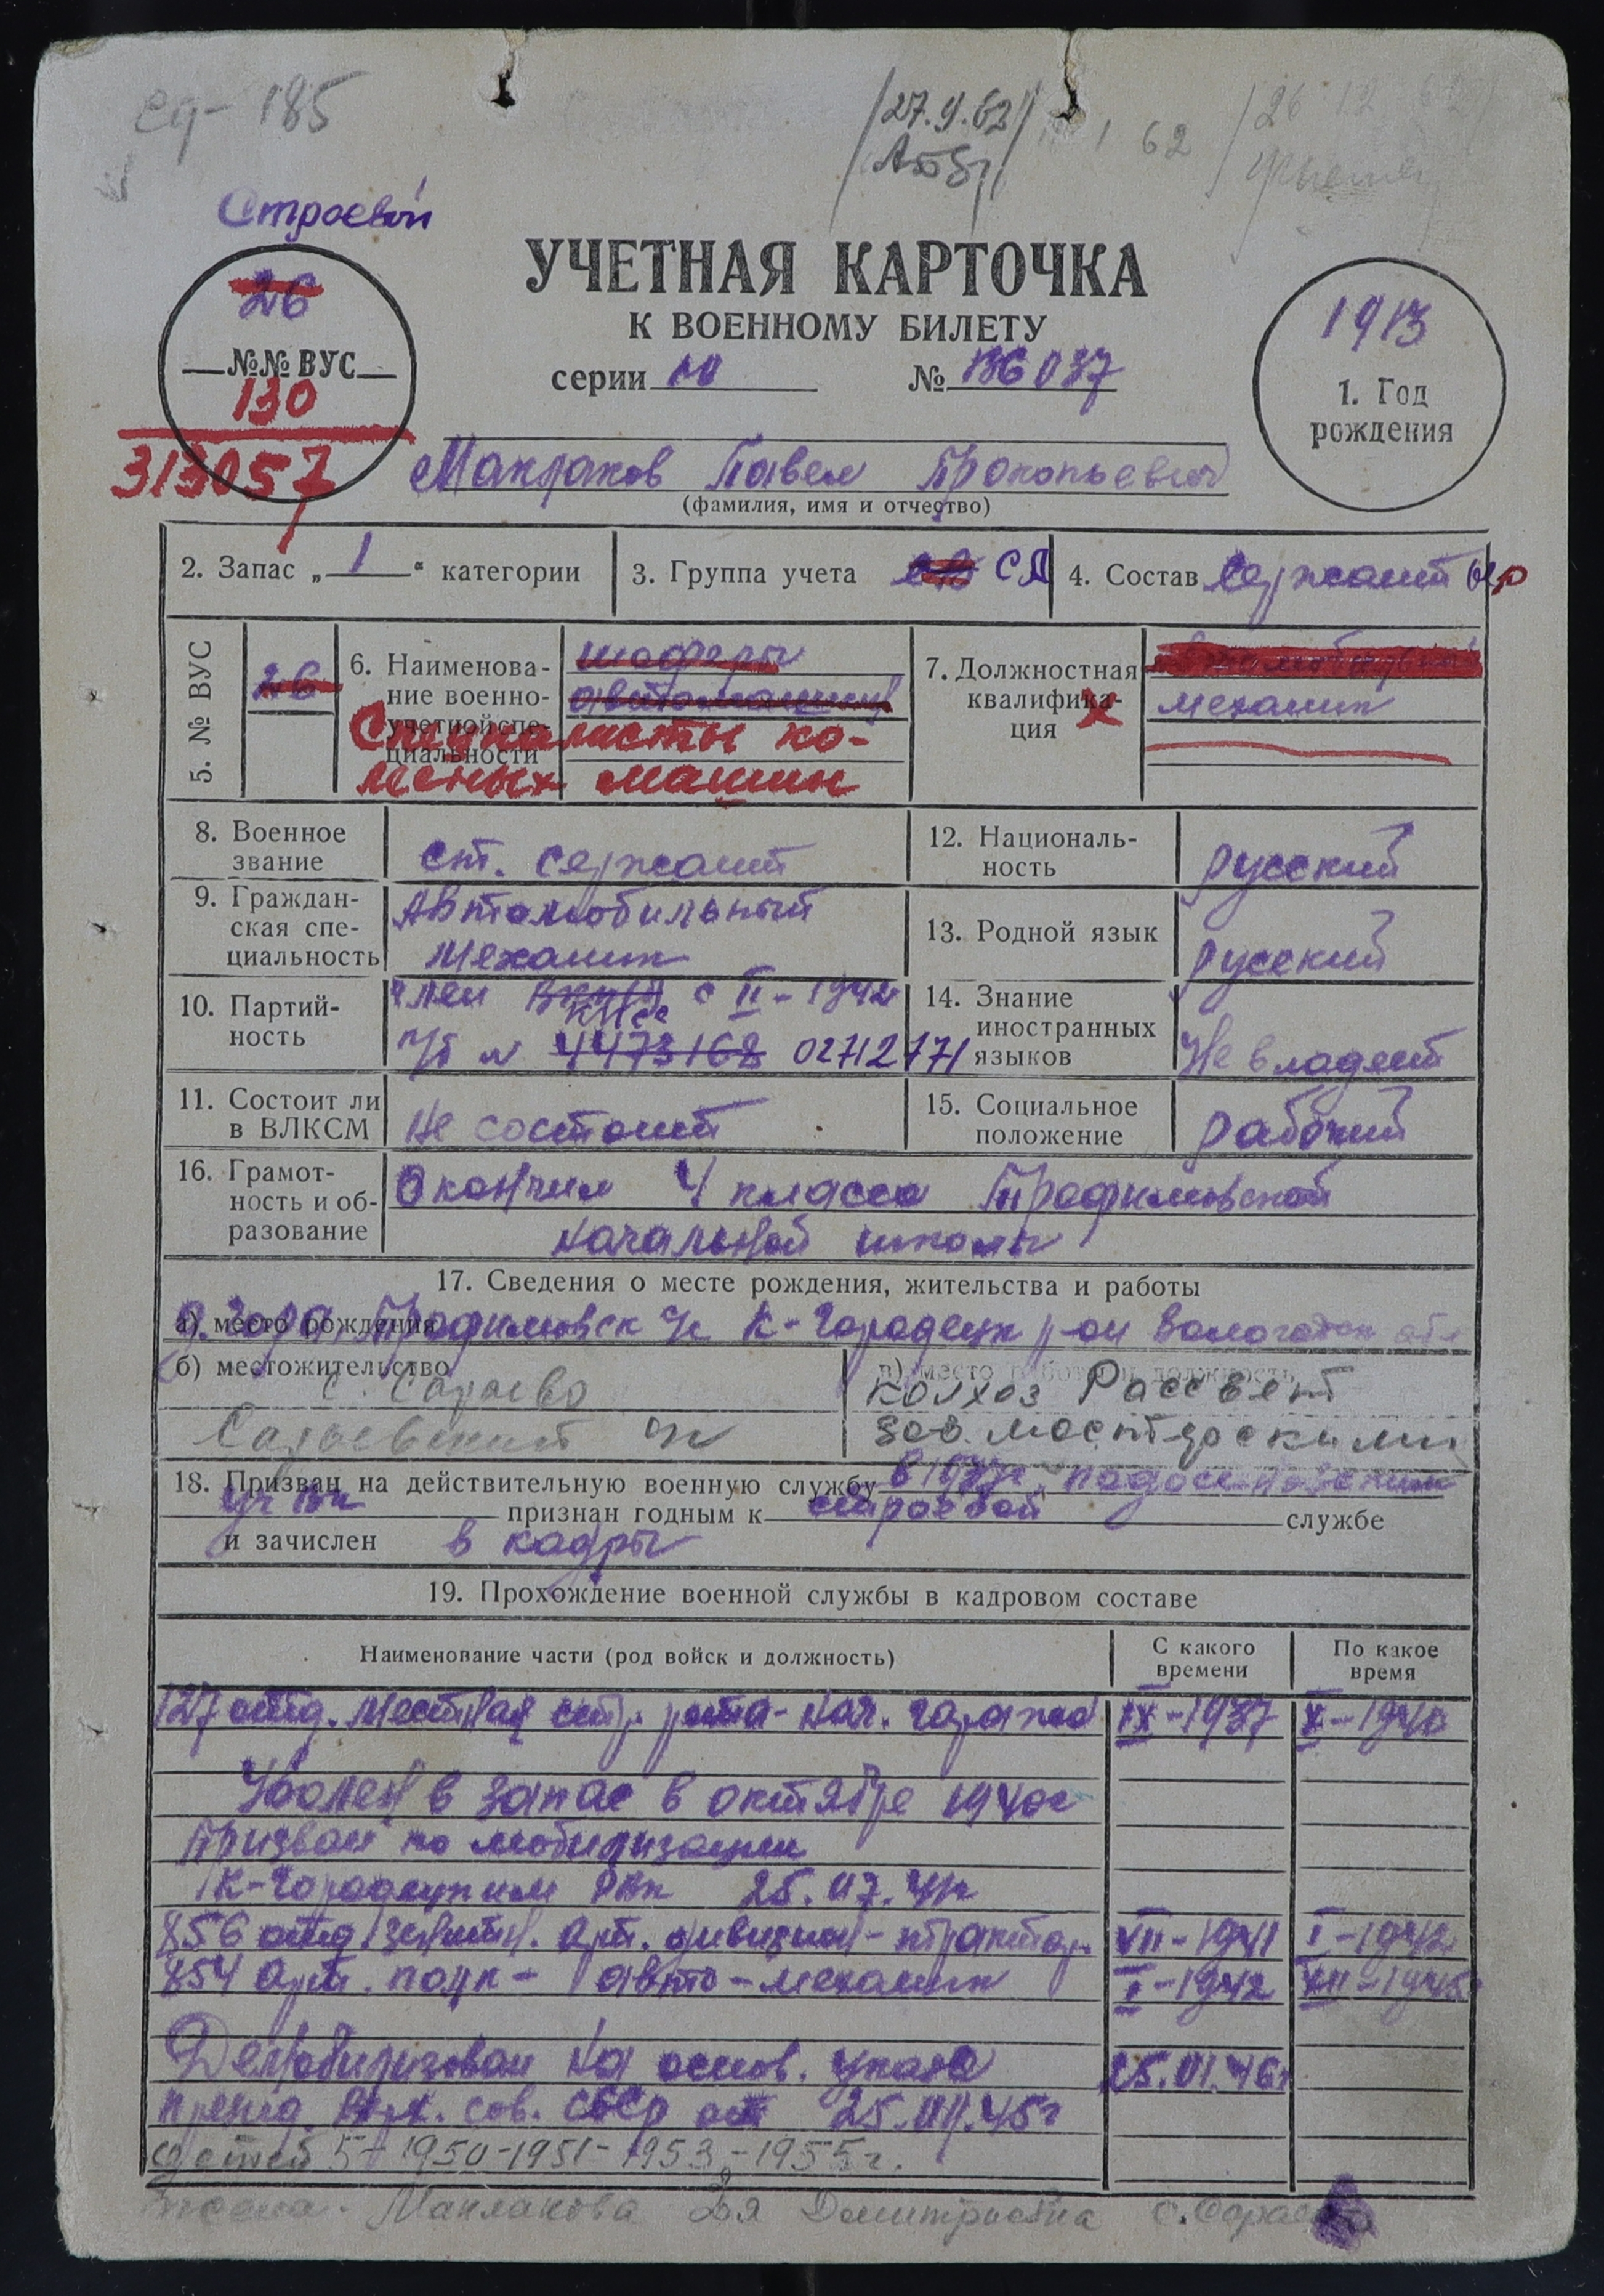 ед- 185
/27.9.62/
1 62
26 12 62
Строевой
26
№№ ВУС
130
313057
УЧЕТНАЯ КАРТОЧКА
К ВОЕННОМУ БИЛЕТУ
серии № 136037
1913
1. Год
рождения
Маклаков Павел Прокопьевич
(фамилия, имя и отчество)
2. Запас „ 1 “ категории
3. Группа учета СА
4. Состав Сержант
5. № ВУС
26
6. Наименова-
ние военно-
учетной спе-
циальности
шоферы
автомашин
Специалисты ко-
лесных машин
7. Должностная
квалифика-
ция
механик
8. Военное
звание
ст. сержант
12. Националь-
ность
русский
9. Граждан-
ская спе-
циальность
Автомобильный
механик
13. Родной язык
русский
10. Партий-
ность
член ВКП(б) с II-1942
КПСС
п/б № 4473168 02712771
14. Знание
иностранных
языков
Не владеет
11. Состоит ли
в ВЛКСМ
Не состоит
15. Социальное
положение
рабочий
16. Грамот-
ность и об-
разование
Окончил 4 класса Трофимовской
начальной школы
17. Сведения о месте рождения, жительства и работы
а) место рождения
д. Гора, Трофимовск с/с К-Городецк р-он Вологодск обл
б) местожительство
с. Сараево
Сараевский с/с
в) место работы и должность
колхоз Рассвет
зав. мастерскими
18. Призван на действительную военную службу в
признан годным к строевой службе
и зачислен в кадры
19. Прохождение военной службы в кадровом составе
Наименование части (род войск и должность)
С какого
времени
По какое
время
127 отд. местная стр. рота- нач. гаража IX-1937 X-1940
Уволен в запас в октябре 1940г
Призван по мобилизации
К-Городецким РВК 25.07.41г
856 отд. зенитн. арт. дивизион- трактор. VII-1941 I-1942
854 арт. полк- авто-механик I-1942 XII-1945
Демобилизован на основ. указа 25.01.46г
през. Верх. сов. СССР от 25.09.45г
детей 5- 1950-1951-1953-1955г.
Жена- Маклакова Дмитриевна с. Сараево